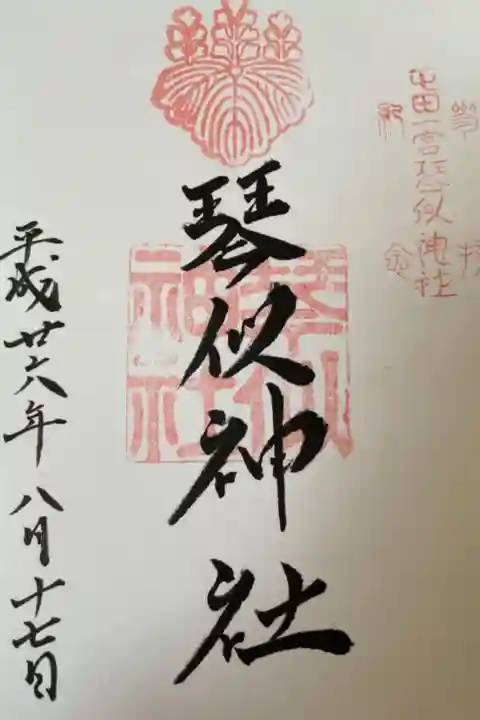 参拝
屯田一宮琴似神社
琴似神社
琴似
神社
平成廿六年八月十七日